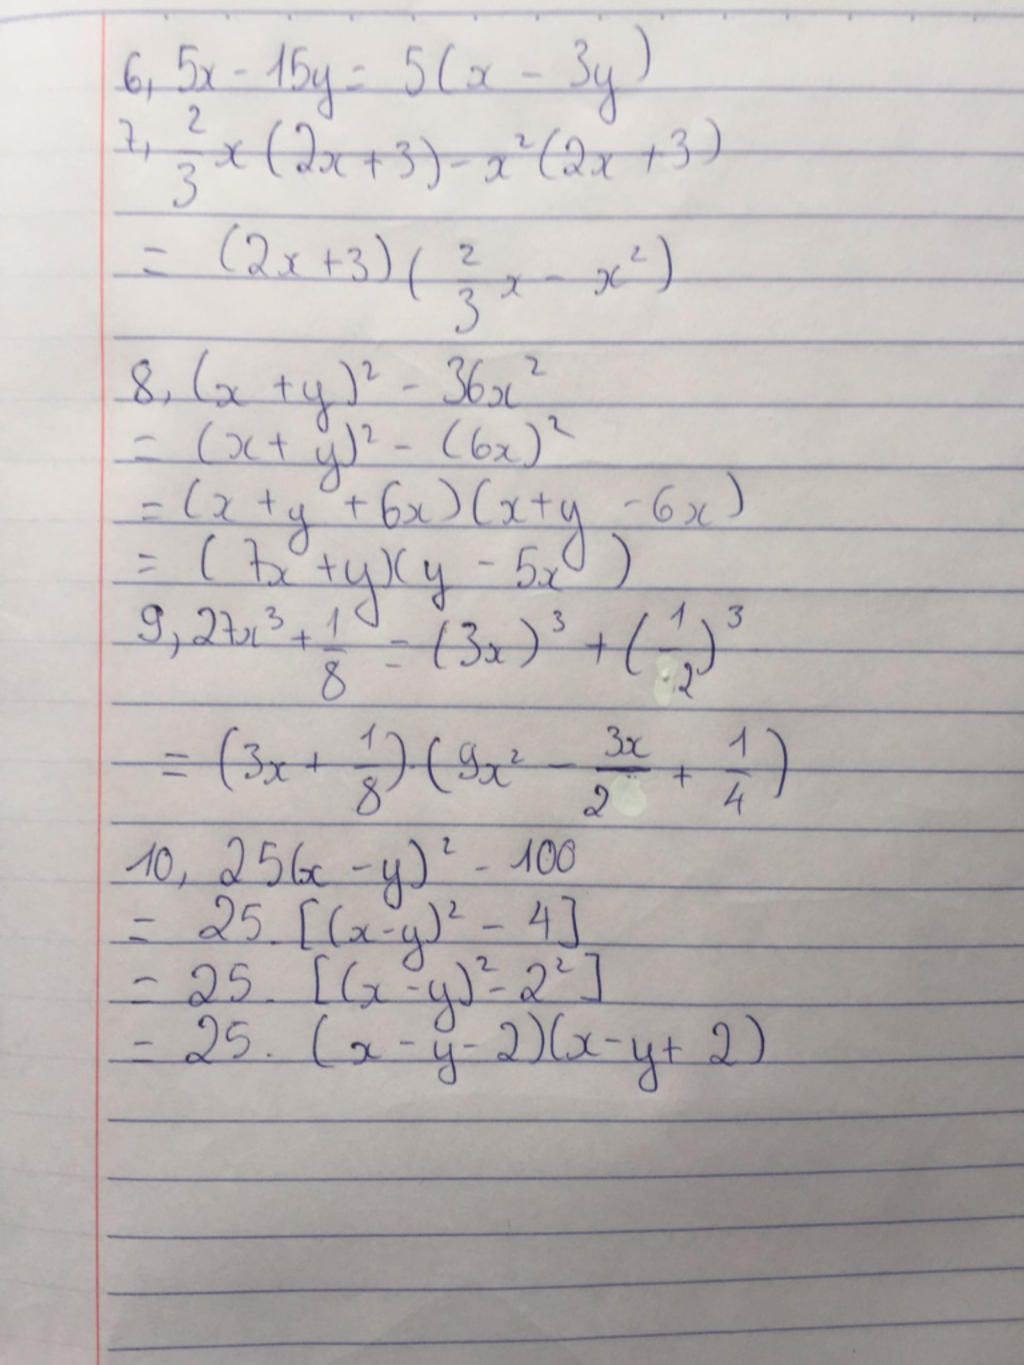 6, 5x - 15y = 5(x - 3y)
7, 2/3 x(2x+3) - x²(2x+3)
= (2x+3)(2/3 x - x²)
8, (x+y)² - 36x²
= (x+y)² - (6x)²
= (x+y+6x)(x+y-6x)
= (7x+y)(y-5x)
9, 27x³ + 1/8 = (3x)³ + (1/2)³
= (3x + 1/8)(9x² - 3x/2 + 1/4)
10, 25(x-y)² - 100
= 25.[(x-y)² - 4]
= 25.[(x-y)² - 2²]
= 25.(x-y-2)(x-y+2)